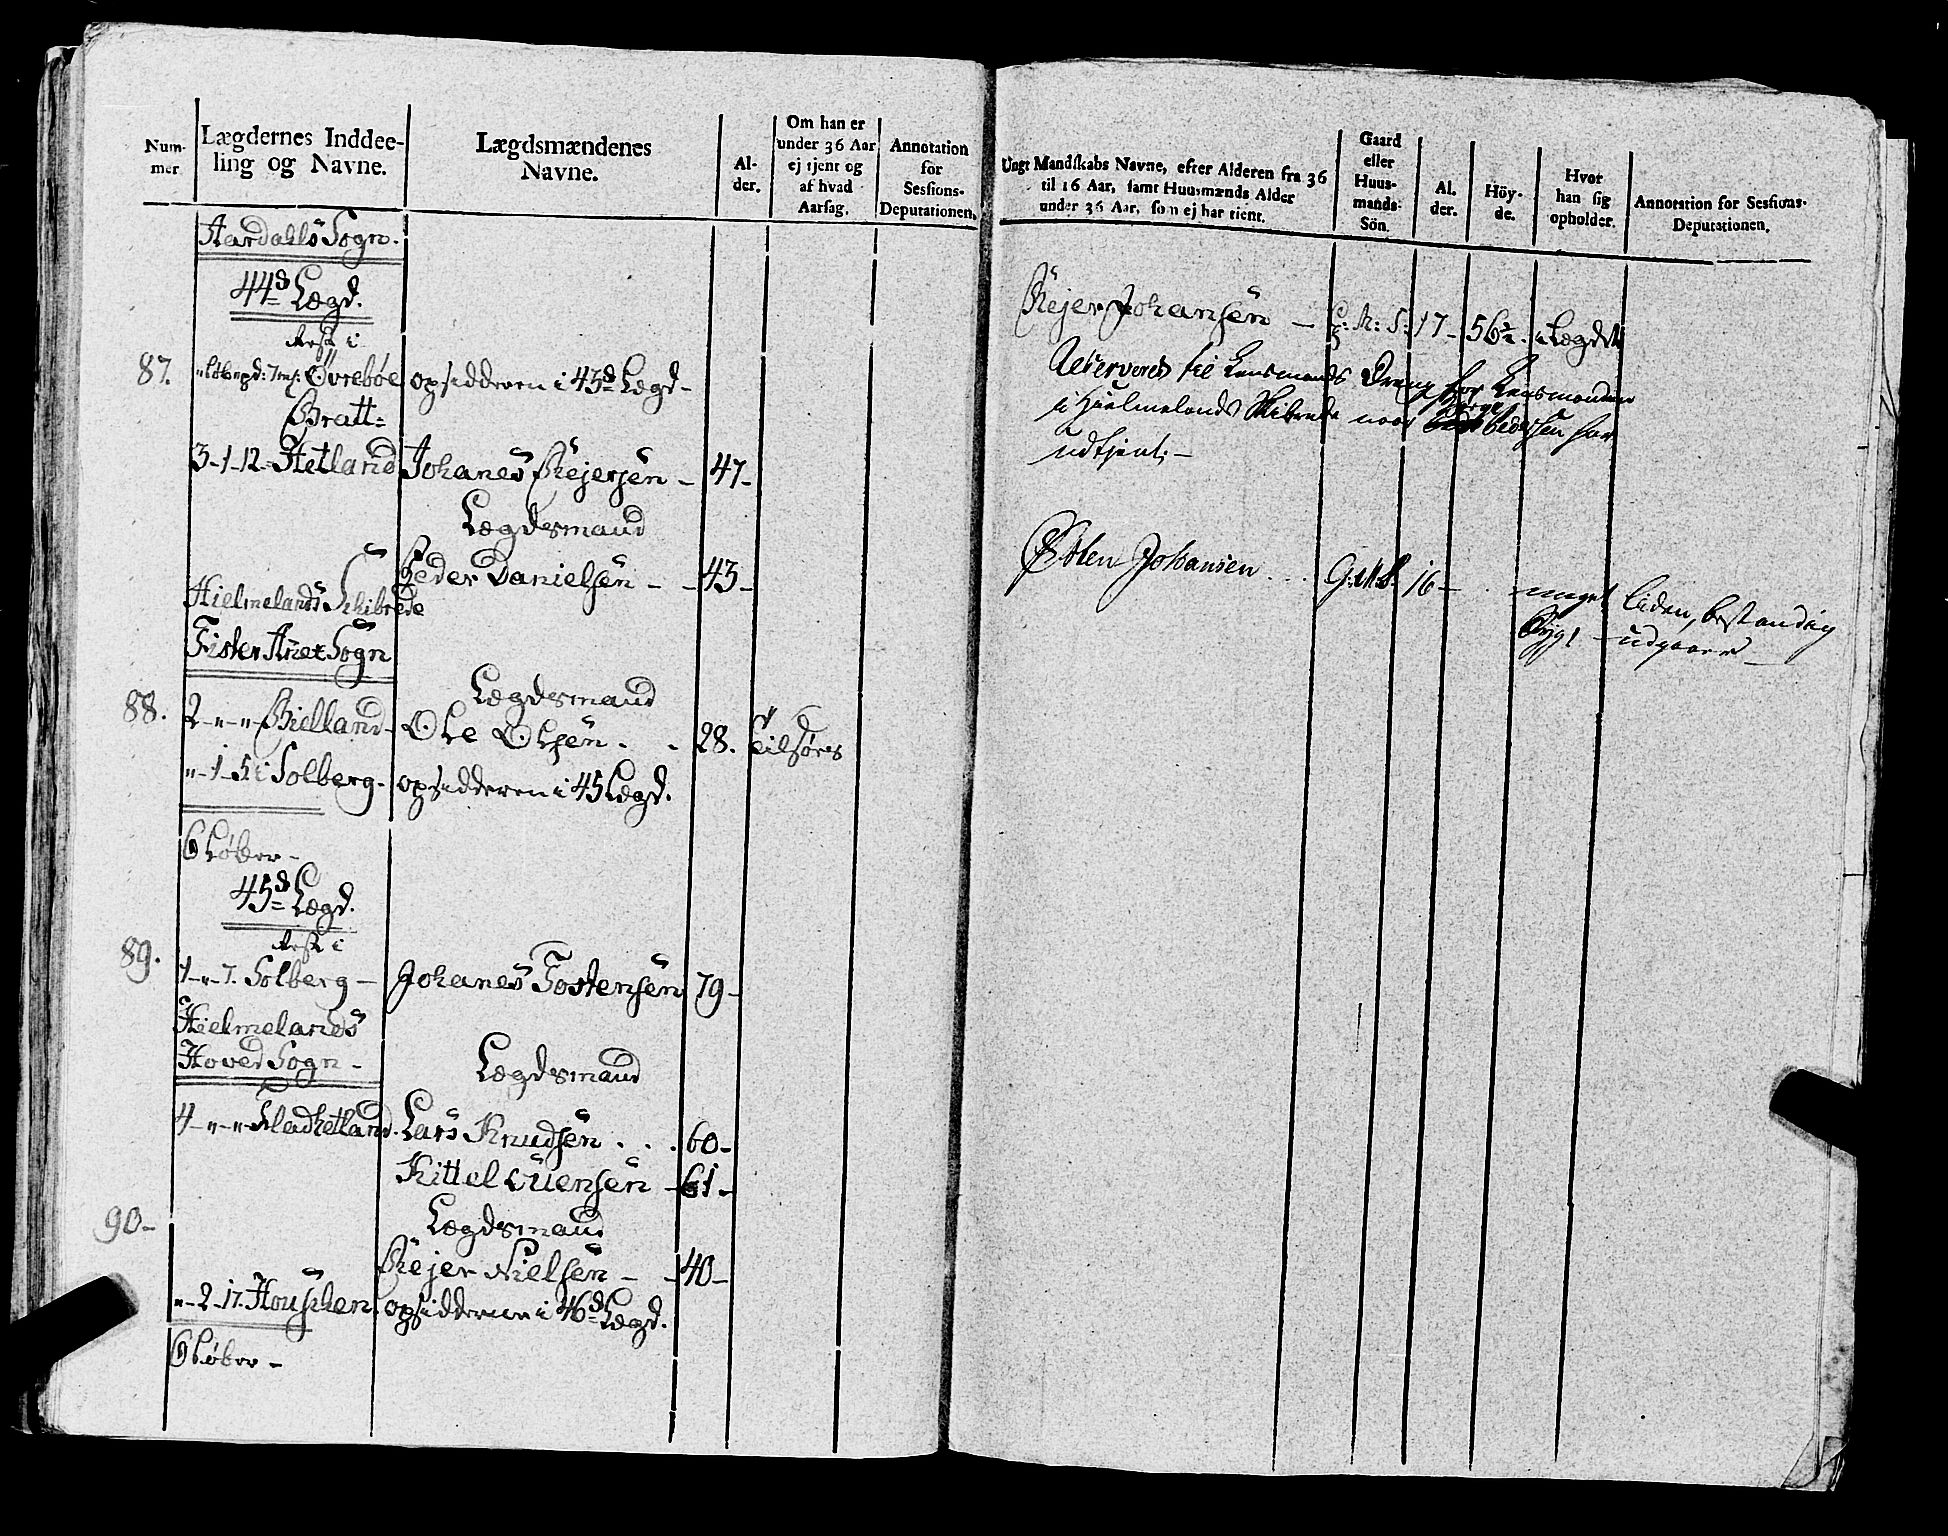 Num-
mer
Lægdernes Inddee-
ling og Navne.
Lægdsmændenes
Navne.
Al-
der.
Om han er
under 36 Aar
ej tjent og
af hvad
Aarsag.
Annotation
for
Sessions-
Deputationen.
Aardahls Sogn.
44d Lægd.
Rest i
87.
Øvrebøe opsidderen i 45d Lægd -
Bratt=
3-1-12- Hetland Johanes Rejersen - 47-
Lægdsmand
Peder Danielsen - - 43-
Hielmelands Schibrede
Fister Anex Sogn
Lægdsmand
88. 2-"-"- Bielland- Ole Olsen . . 28.
"-1- Solberg- opsidderen i 45 Lægd.
6 Løber -
45d Lægd.
Rest i
89.
1-"-7. Solberg - Johanes Tostensen 79-
Hielmelands
Hoved Sogn -
Lægdsmand
4-"-"- Hladhetland. Lars Knudsen . . . 60-
Kittel Ouensen - 61-
90- Lægdsmand
Rejer Nielsen - - 40-
"-2-17. Houschen. opsidderne i 46d Lægd.
6 Løber -
Ungt Mandskabs Navne, efter Alderen fra 36
til 16 Aar, samt Huusmænds Alder
under 36 Aar, som ej har tient.
Gaard
eller
Huus-
mands-
Sön.
Al.
der.
Höy-
de.
Hvor
han sig
opholder.
Annotation for Sessions-
Deputationen.
Rejer Johansen - G: M: S: 17- 56½. i Lægdet
Reserveres til Lensmands Dreng for Lensmanden
i Hielmelands Skibrede naar Pedersen har
udtjent; -
Osten Johansen . . . G: M: S. 16- . meget liden, bestandig
Bygt - udgaaer -